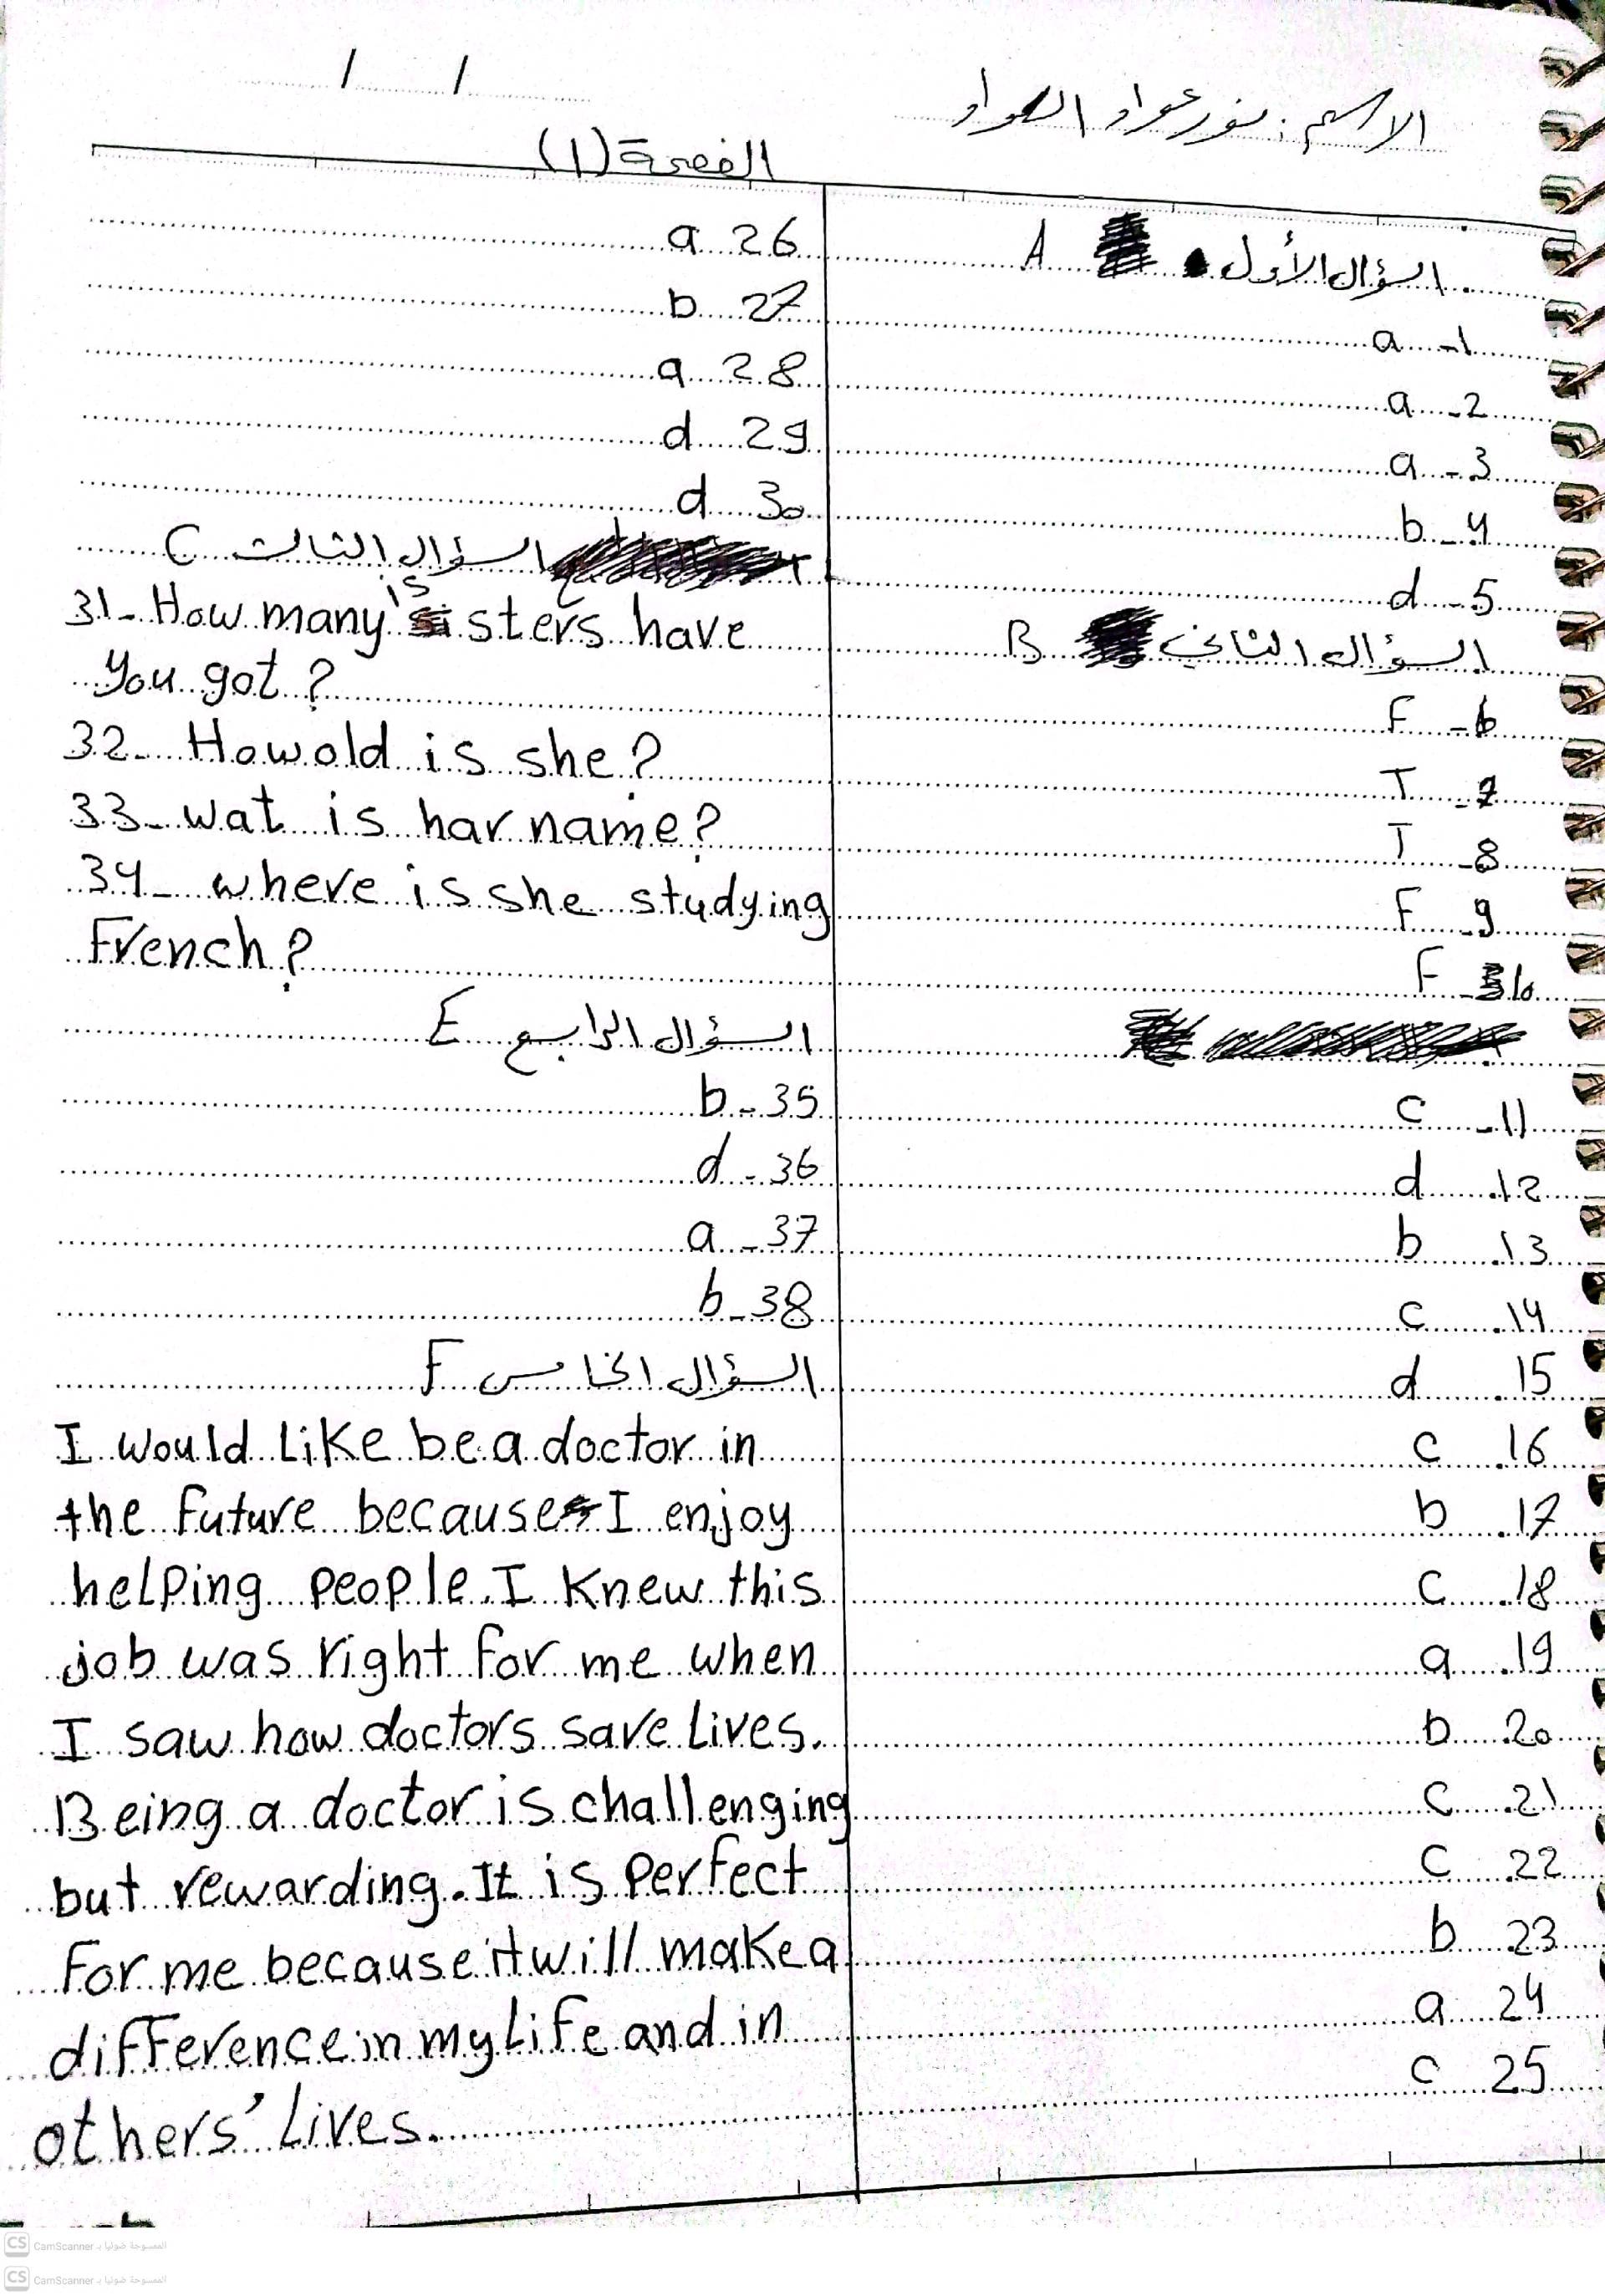 / /
الاسم : نور عواد العواد
الفحصة (1)
السؤال الأول A
a - 1
a - 2
a - 3
b - 4
d - 5
السؤال الثاني B
F - 6
T - 7
T - 8
F - 9
F - 10
c - 11
d .12
b .13
c .14
d .15
c .16
b .17
c .18
a .19
b .20
c .21
c .22
b 23
a 24
c 25
a 26
b 27
a 28
d 29
d 30
السؤال الثالث C
31- How many sisters have
you got?
32- How old is she?
33- wat is har name?
34- where is she studying
French?
السؤال الرابع E
b - 35
d - 36
a - 37
b - 38
السؤال الخامس F
I would like be a doctor in
the future because I enjoy
helping people. I knew this
job was right for me when
I saw how doctors save lives.
Being a doctor is challenging
but rewarding. It is perfect
for me because it will make a
difference in my life and in
others' lives.
CS CamScanner الممسوحة ضوئيا بـ
CS CamScanner الممسوحة ضوئيا بـ